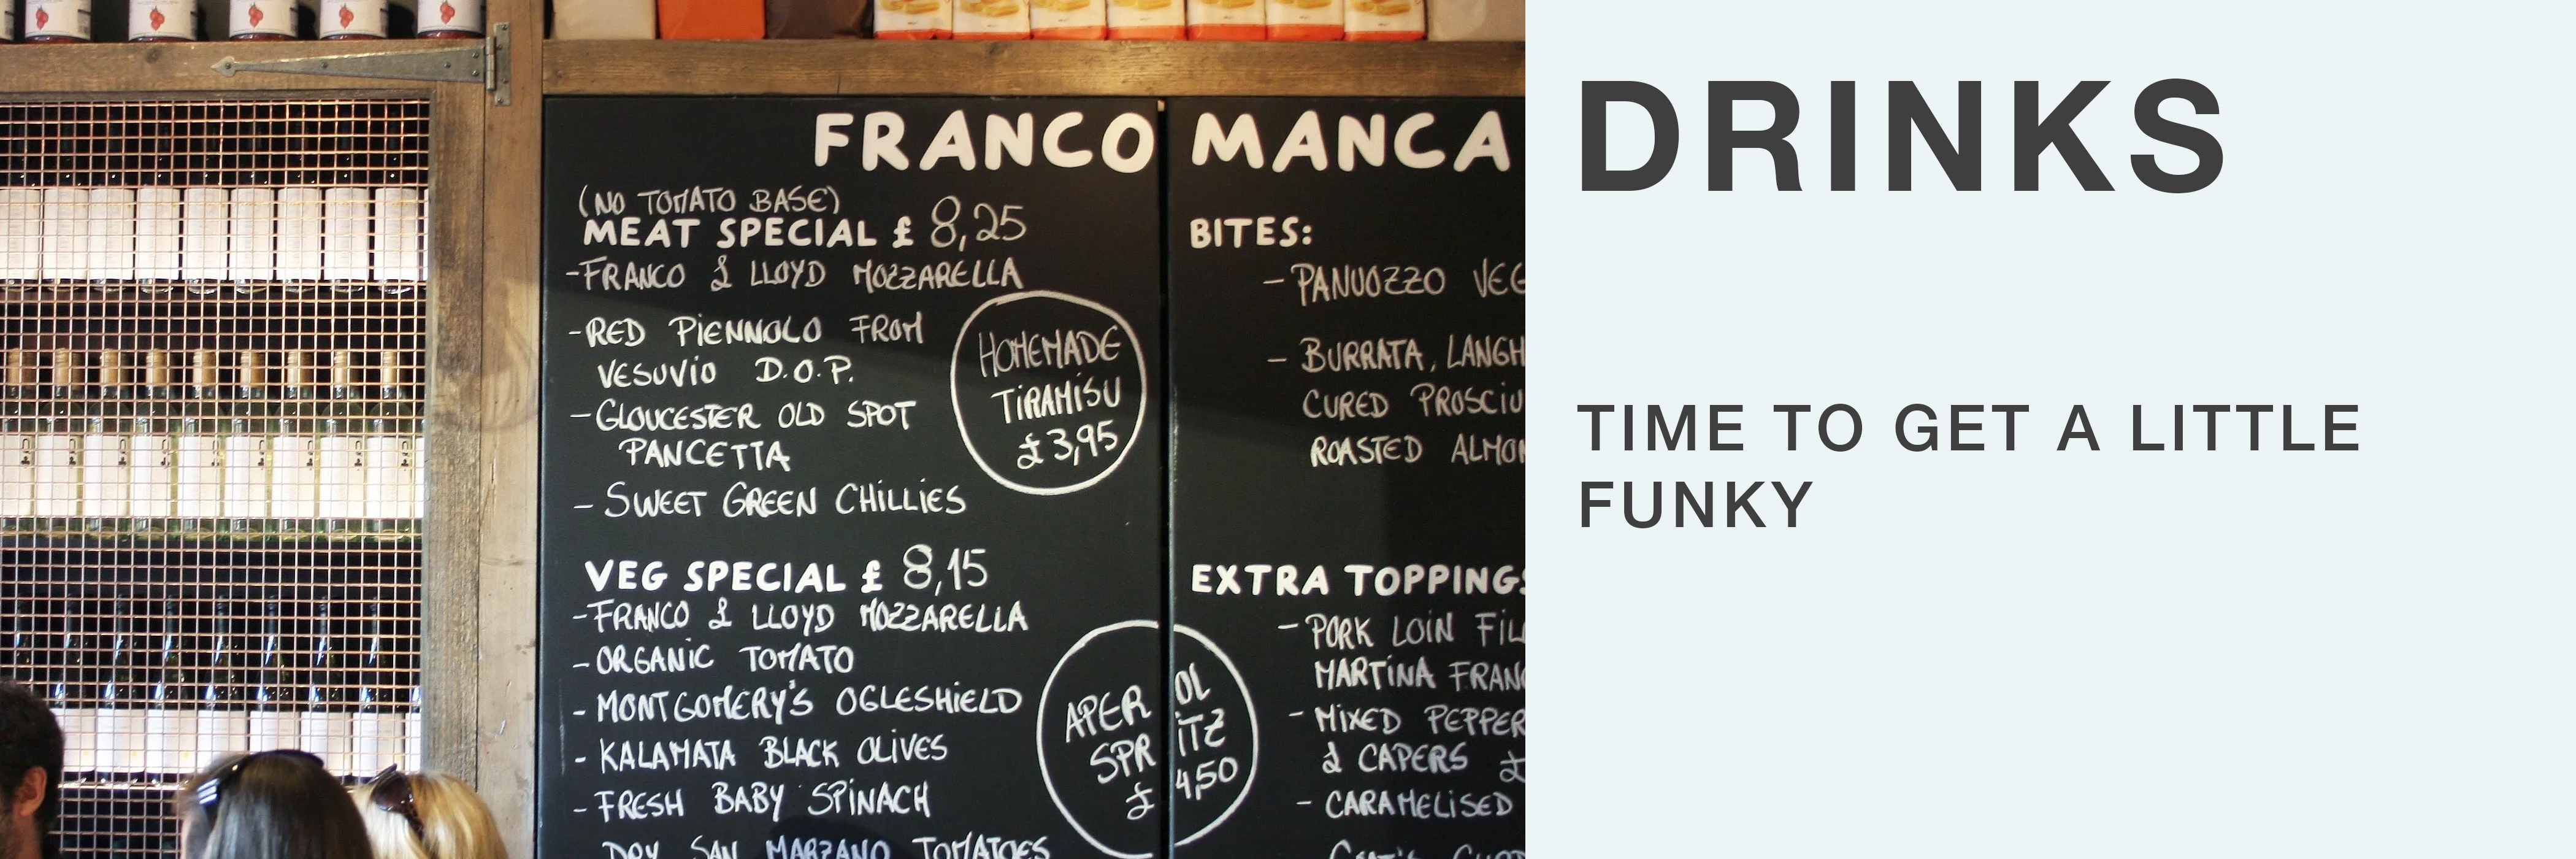 FRANCO MANCA
(NO TOMATO BASE)
MEAT SPECIAL £ 8,25
-FRANCO & LLOYD MOZZARELLA
-RED PIENNOLO FROM
VESUVIO D.O.P.
-GLOUCESTER OLD SPOT
PANCETTA
- SWEET GREEN CHILLIES
HOMEMADE
TIRAMISU
£3,95
VEG SPECIAL £ 8,15
-FRANCO & LLOYD MOZZARELLA
-ORGANIC TOMATO
- MONTGOMERY'S OGLESHIELD
- KALAMATA BLACK OLIVES
- FRESH BABY SPINACH
DRY SAN MARZANO TOMATOES
APEROL
SPRITZ
£4,50
BITES:
- PANUOZZO VEG
- BURRATA, LANGH
CURED PROSCIU
ROASTED ALMON
EXTRA TOPPINGS
- PORK LOIN FIL
MARTINA FRAN
- MIXED PEPPER
& CAPERS £
- CARAMELISED
DRINKS
TIME TO GET A LITTLE
FUNKY